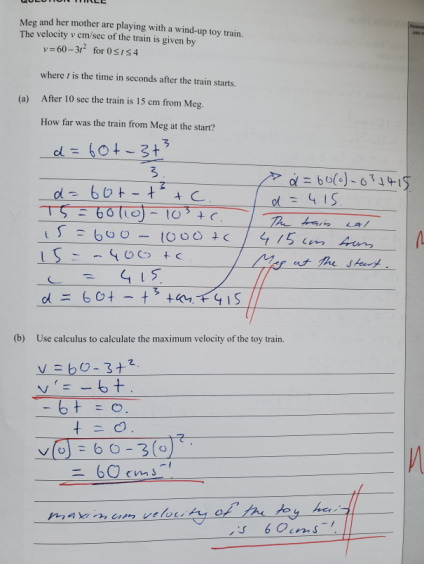 QUESTION THREE
Meg and her mother are playing with a wind-up toy train.
The velocity v cm/sec of the train is given by
v=60–3t² for 0≤t≤4
where t is the time in seconds after the train starts.
(a) After 10 sec the train is 15 cm from Meg.
How far was the train from Meg at the start?
d = 60t - 3t³
3.
d = 60t - t³ + c.
15 = 60(10) - 10³ + c.
15 = 600 - 1000 + c
15 = - 400 + c
c = 415.
d = 60t - t³ + 415
d = 60(0) - 0³ + 415
d = 415.
The train
415 cm from
Meg at the start.
(b) Use calculus to calculate the maximum velocity of the toy train.
v = 60 - 3t².
v' = - 6t.
- 6t = 0.
t = 0.
v(0) = 60 - 3(0)².
= 60 cms⁻¹
maximum velocity of the toy train
is 60cms⁻¹.